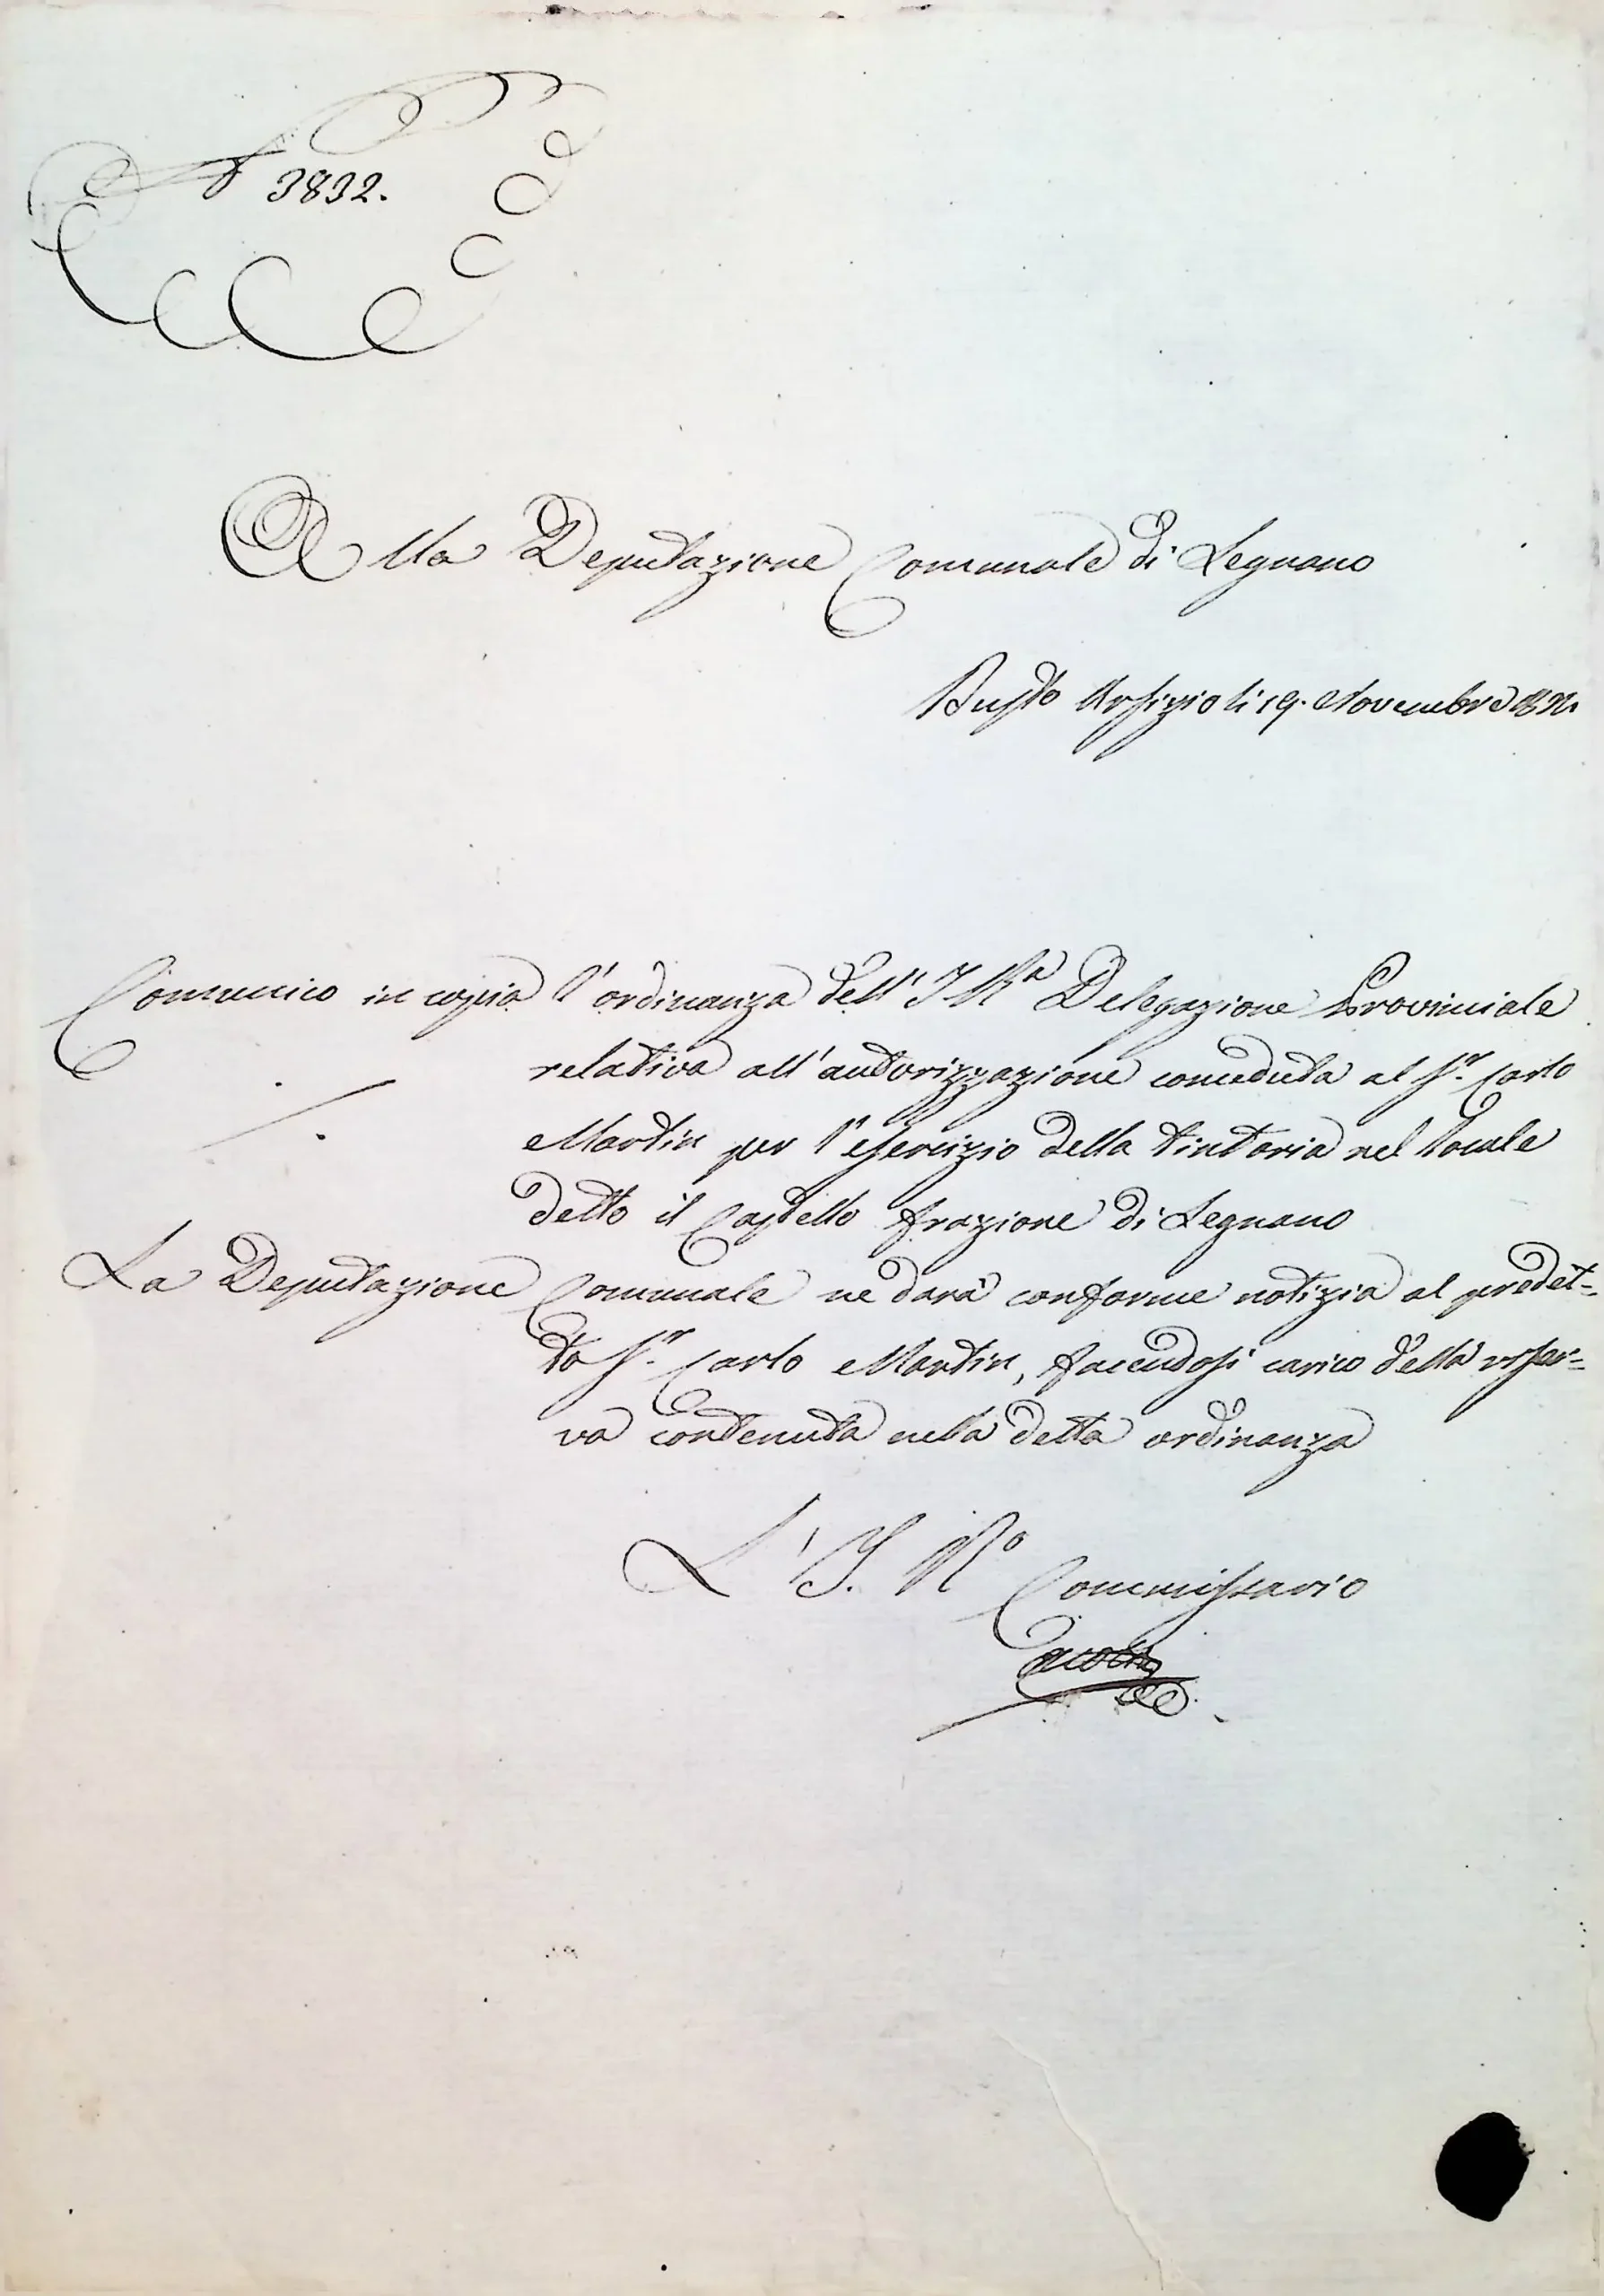 N 3832.
Alla Deputazione Comunale di Legnano
Busto Arsizio li 19. Novembre
Comunico in copia l'ordinanza dell' I Rª Delegazione Provinciale
relativa all'autorizzazione conceduta al Sr. Carlo
Martin per l'esercizio della tintoria nel locale
detto il Castello frazione di Legnano
La Deputazione Comunale ne darà conforme notizia al predet=
to Sr. Carlo Martin, facendosi carico della riser=
va contenuta nella detta ordinanza
L' I. Rº Commissario